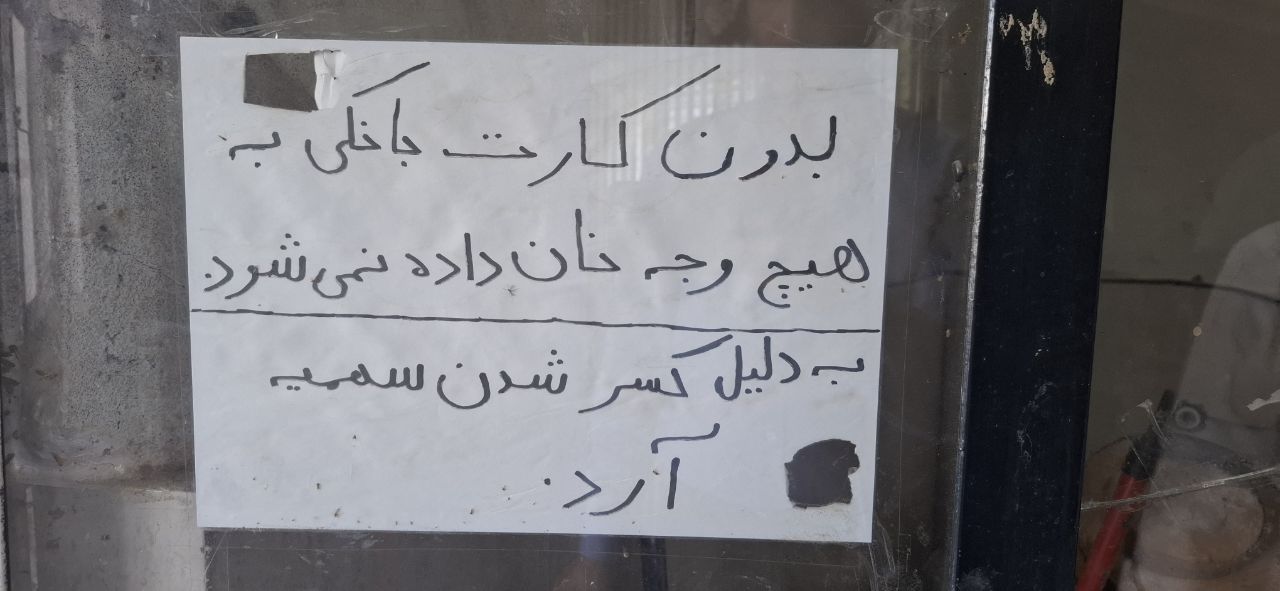 بدون کارت بانکی به
هیچ وجه نان داده نمی شود.
به دلیل کسر شدن سهمیه
آرد.